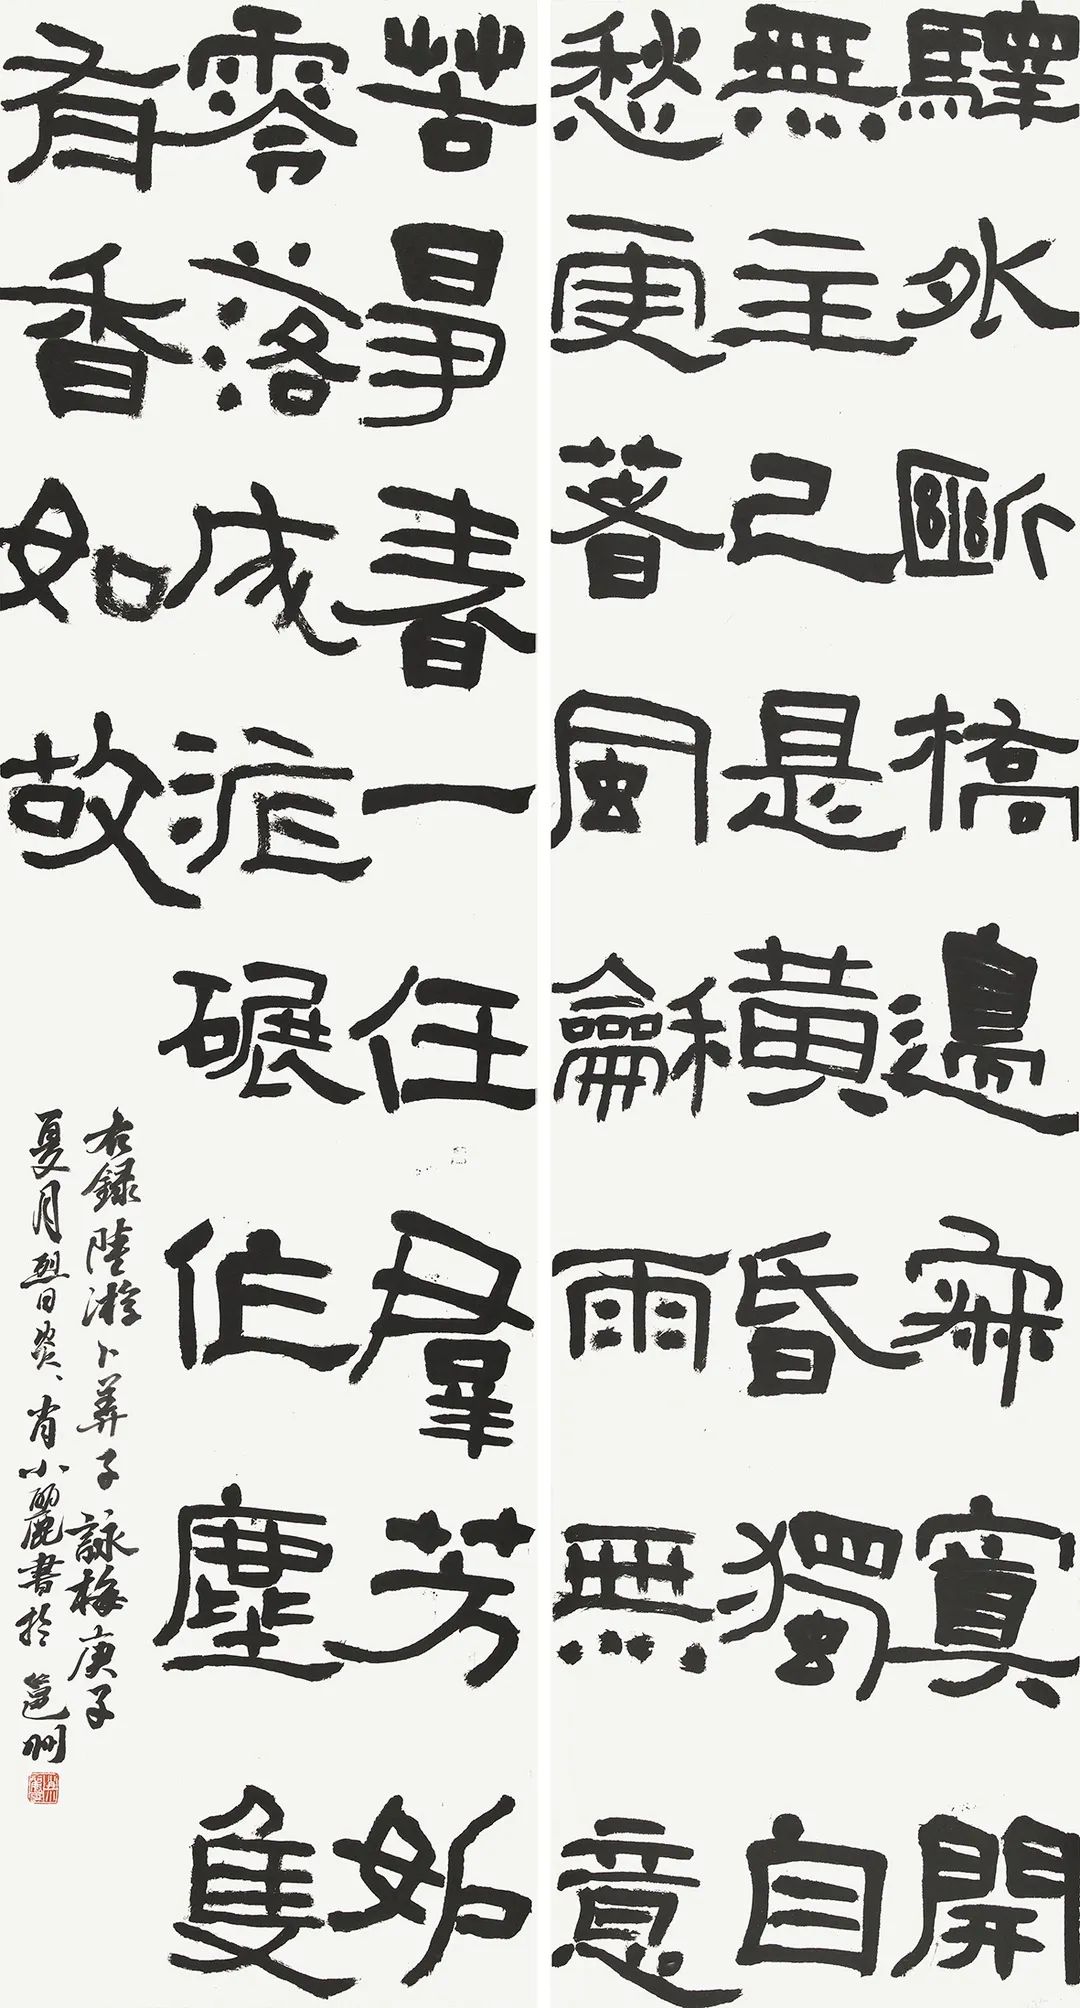 驛外斷橋邊寂寞開
無主已是黃昏獨自
愁更著風龢雨無意
苦爭春一任羣芳妒
零落成泥碾作塵隻
有香如故
右録陸游卜算子詠梅庚子
夏月烈日炎、肖小麗書於邕州